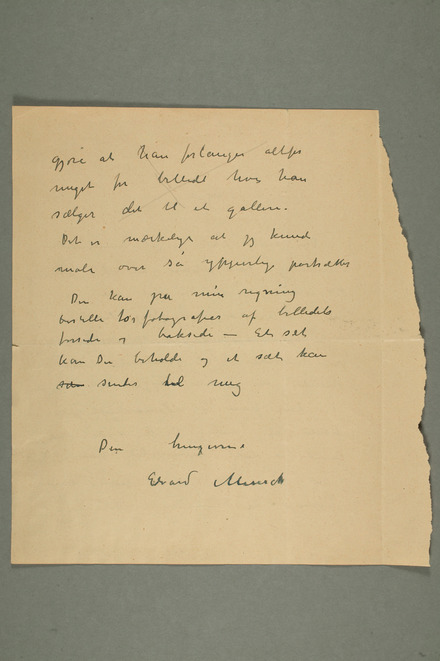 gjøre at han forlanger altfor
meget for billedet hvis han
sælger det til et galleri.
Det er mærkelig at jeg kunde
male over så ypperlige portrætter
Du kan på min regning
bestille to fotografier af billedets
forside og bakside – Et sæt
kan Du beholde og et sæt kan
sendes til meg
Din hengivne
Edvard Munch